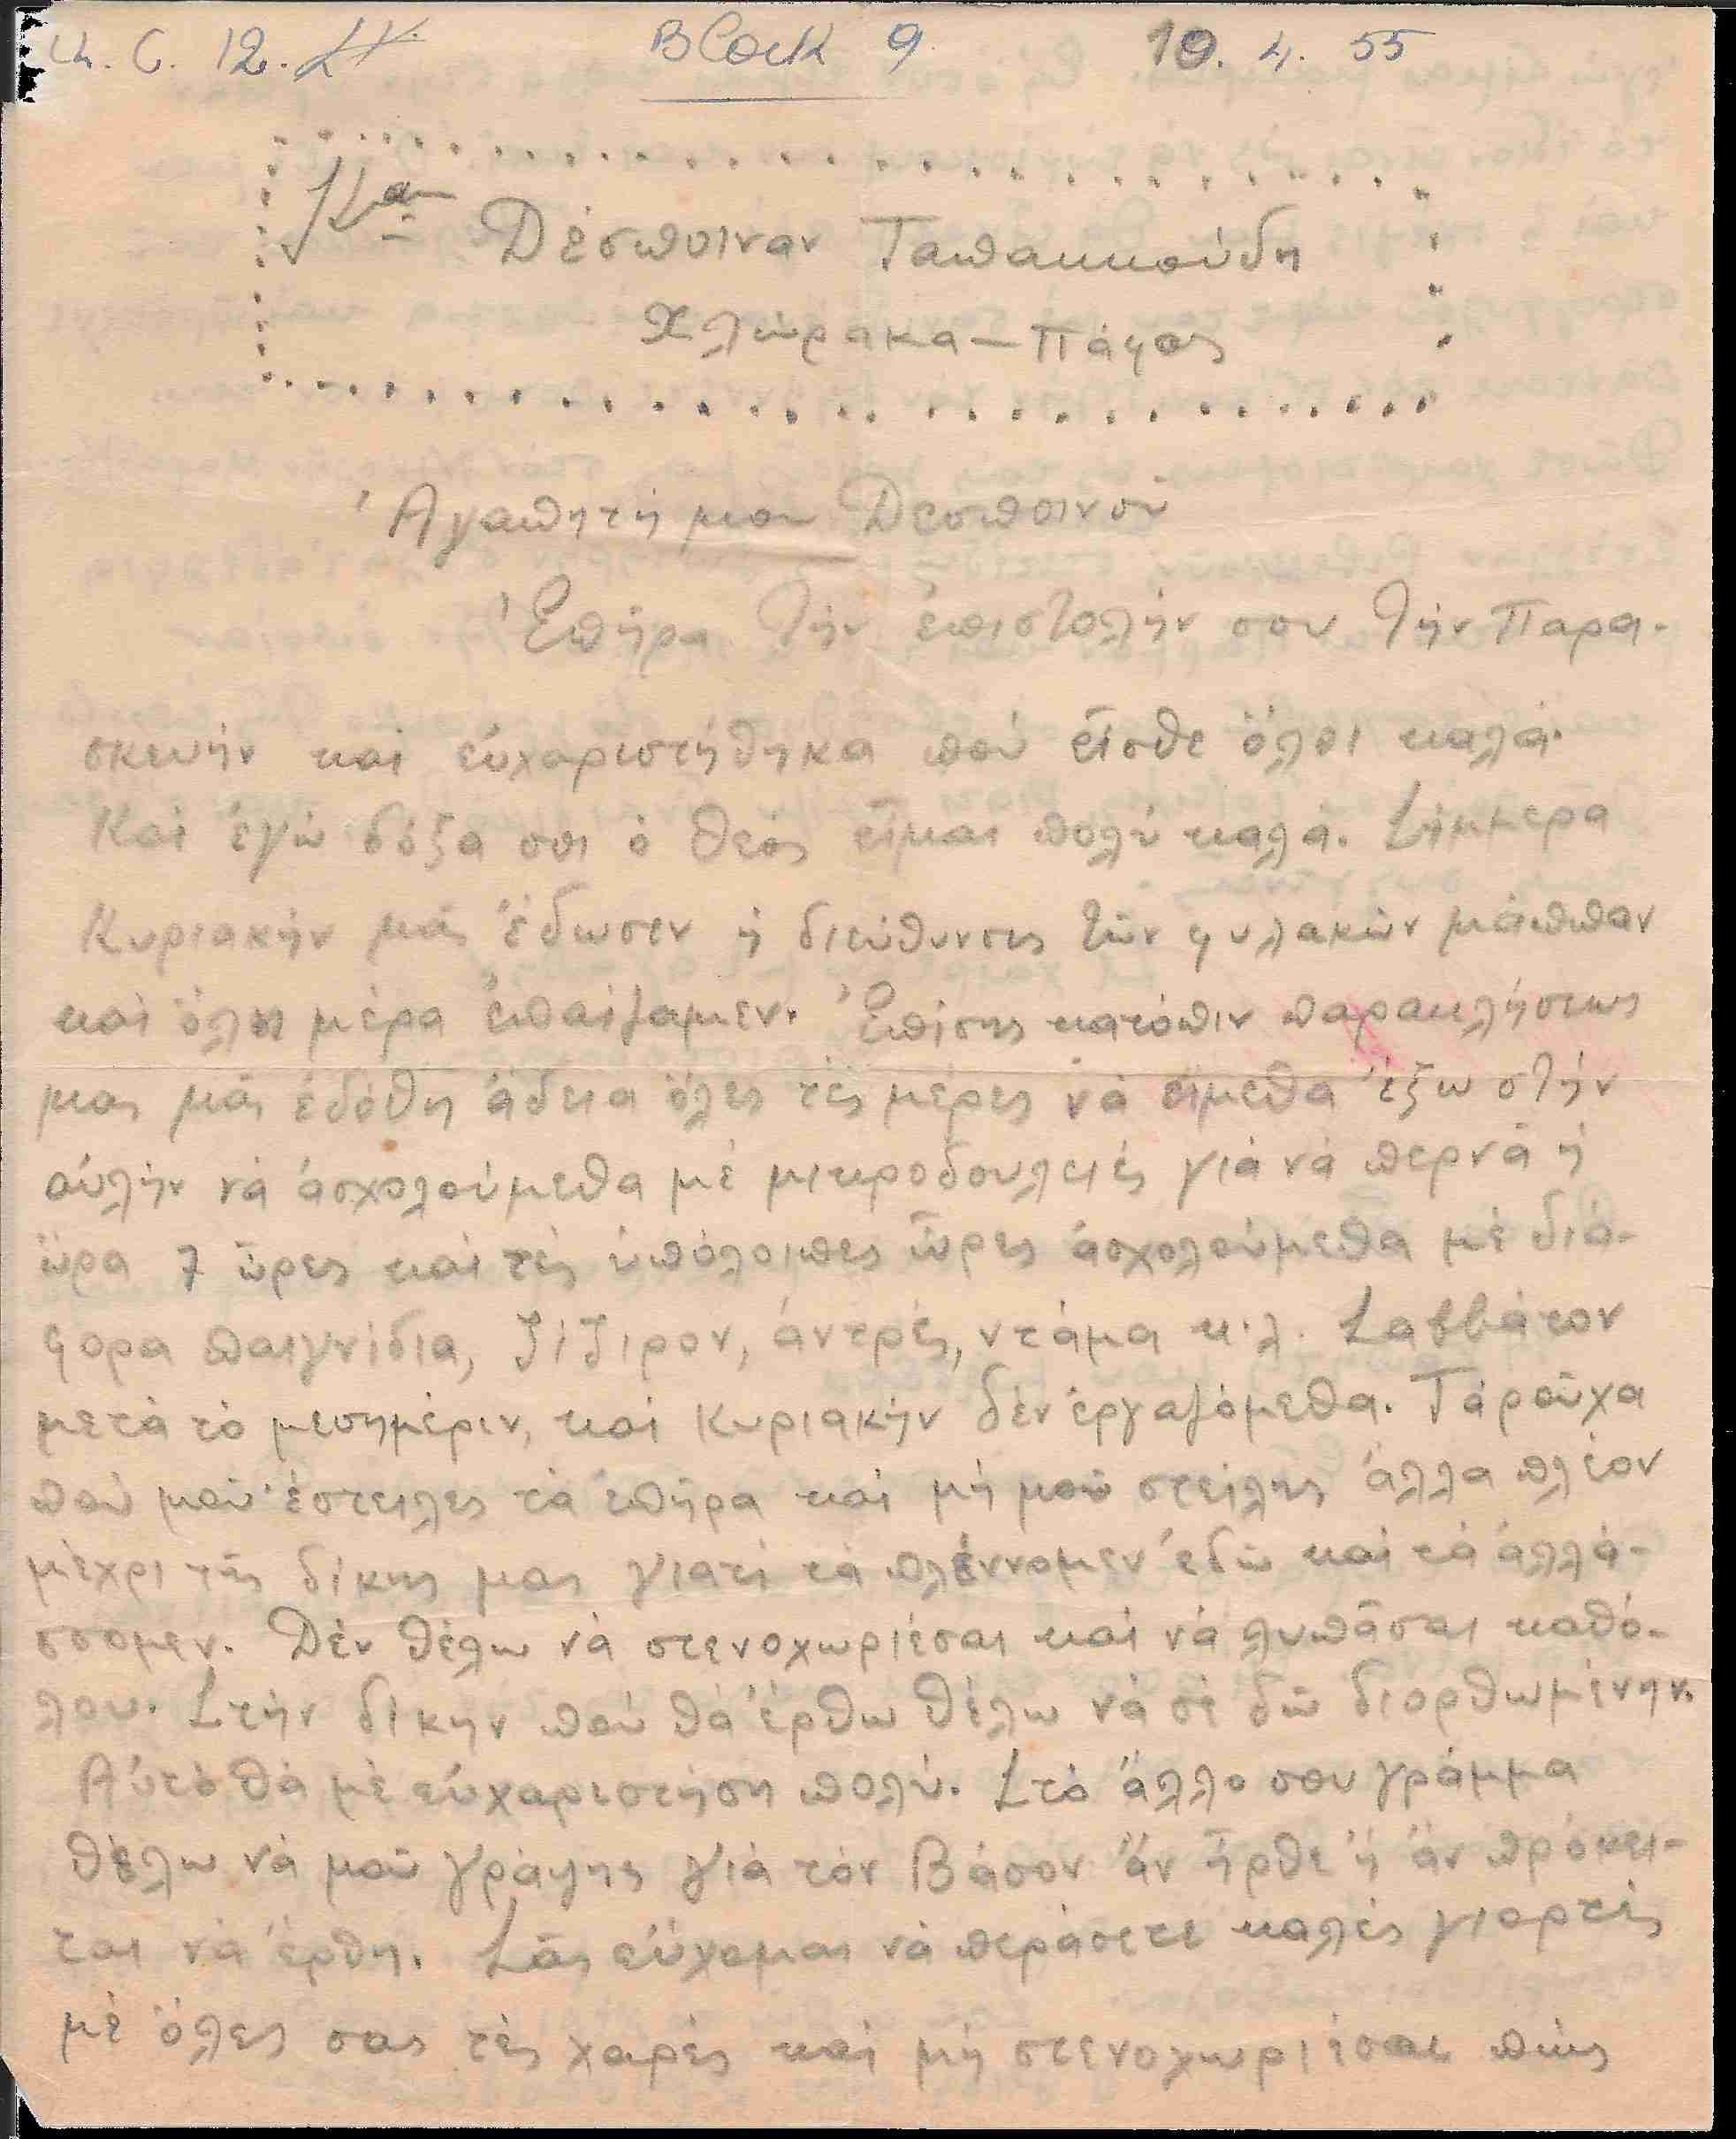 Block 9 10. 4. 55
Καν Δέσποιναν Ταπακκούδη
Χλώρακα – Πάφος
Ἀγαπητή μου Δεσποινοῦ
Ἐπῆρα τήν ἐπιστολήν σου τήν Παρα-
σκευήν καί εὐχαριστήθηκα πού εἶσθε ὅλοι καλά.
Καί ἐγώ δόξα σοι ὁ θεός εἶμαι πολύ καλά. Σήμμερα
Κυριακήν μᾶς ἔδωσεν ἡ διεύθυνσις τῶν φυλακῶν μάππαν
καί ὅλη μέρα ἐπαίζαμεν. Ἐπίσης κατόπιν παρακλήσεως
μας μᾶς ἐδόθη ἄδεια ὅλες τές μέρες νά εἴμεθα ἔξω στήν
αὐλήν νά ἀσχολούμεθα μέ μικροδουλειές γιά νά περνᾶ ἡ
ὥρα 7 ὥρες καί τές ὑπόλοιπες ὧρες ἀσχολούμεθα μέ διά-
φορα παιγνίδια, ζίζιρον, ἀντρές, ντάμα κ.λ. Σαββάτον
μετά τό μεσημέριν, καί Κυριακήν δέν ἐργαζόμεθα. Τά ροῦχα
πού μοῦ ἔστειλες τά ἐπῆρα καί μή μοῦ στείλης ἄλλα πλέον
μέχρι τῆς δίκης μας γιατί τά πλέννομεν ἐδῶ καί τά ἀλλά-
σσομεν. Δέν θέλω νά στενοχωριέσαι καί νά λυπᾶσαι καθό-
λου. Στήν δίκην πού θά ἔρθω θέλω νά σέ δῶ διορθωμένην.
Αὐτό θά μέ εὐχαριστήση πολύ. Στό ἄλλο σου γράμμα
θέλω νά μοῦ γράψης γιά τόν Βάσον ἄν ἦρθε ἤ ἄν πρόκει-
ται νά ἔρθη. Σᾶς εὔχομαι νά περάσετε καλές γιορτές
μέ ὅλες σας τές χαρές καί μή στενοχωριέσαι πώς